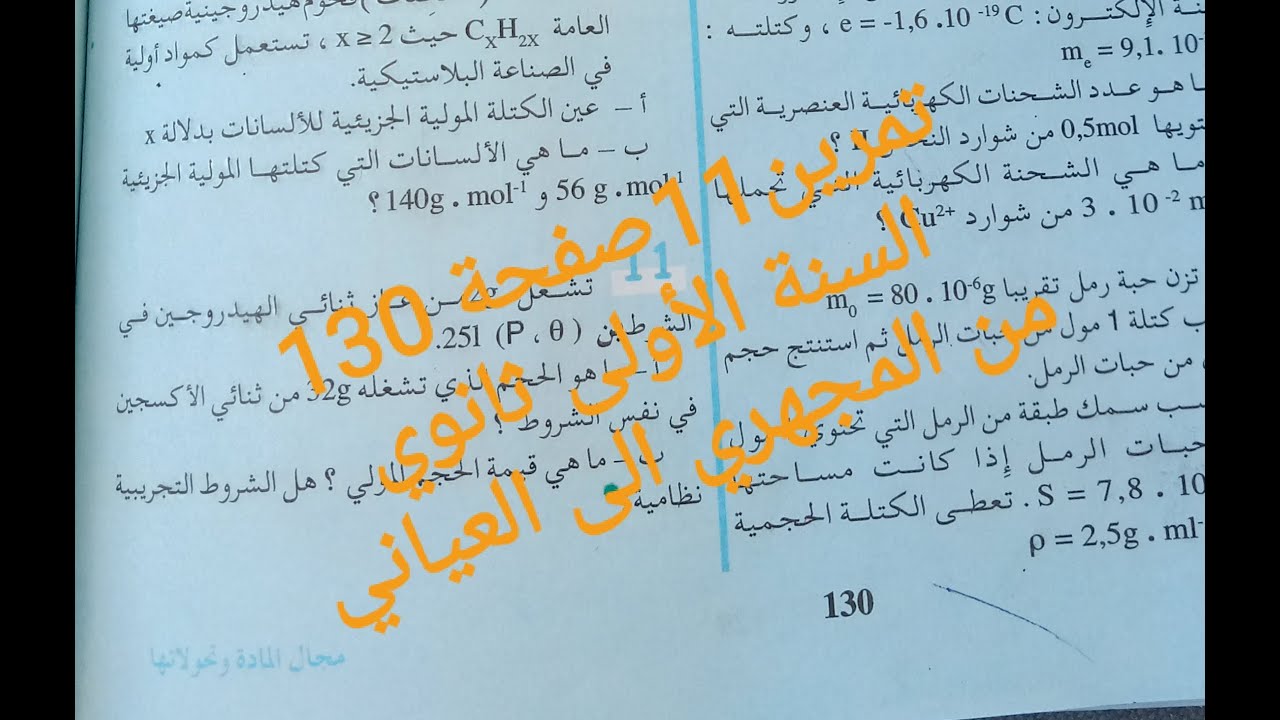 نة الإلكترون: e = -1,6 .10 -19 C ، وكتلته :
me = 9,1. 10-
ا هو عدد الشحنات الكهربائية العنصرية التي
تويها 0,5mol من شوارد
ما هي الشحنة الكهربائية التي تحملها
3 . 10 -2 m من شوارد Cu2+ ؟
تزن حبة رمل تقريبا m0 = 80 . 10-6g
ب كتلة 1 مول من حبات الرمل ثم استنتج حجم
من حبات الرمل.
سب سمك طبقة من الرمل التي تحتوي مول
حبات الرمل إذا كانت مساحتها
S = 7,8 . 10 . تعطى الكتلة الحجمية
ρ = 2,5g . ml-
130
فحوم هيدروجينية صيغتها
العامة CXH2X حيث x ≥ 2 ، تستعمل كمواد أولية
في الصناعة البلاستيكية.
أ – عين الكتلة المولية الجزيئية للألسانات بدلالة x
ب – ما هي الألسانات التي كتلتها المولية الجزيئية
56 g . mol-1 و 140g . mol-1 ؟
11
تشغل 2g من غاز ثنائي الهيدروجين في
الشرطين (P ، θ) 25l.
أ – ما هو الحجم الذي تشغله 32g من ثنائي الأكسجين
في نفس الشروط ؟
ب – ما هي قيمة الحجم المولي ؟ هل الشروط التجريبية
نظامية
مجال المادة وتحولاتها
تمرين11صفحة 130
السنة الأولى ثانوي
من المجهري الى العياني